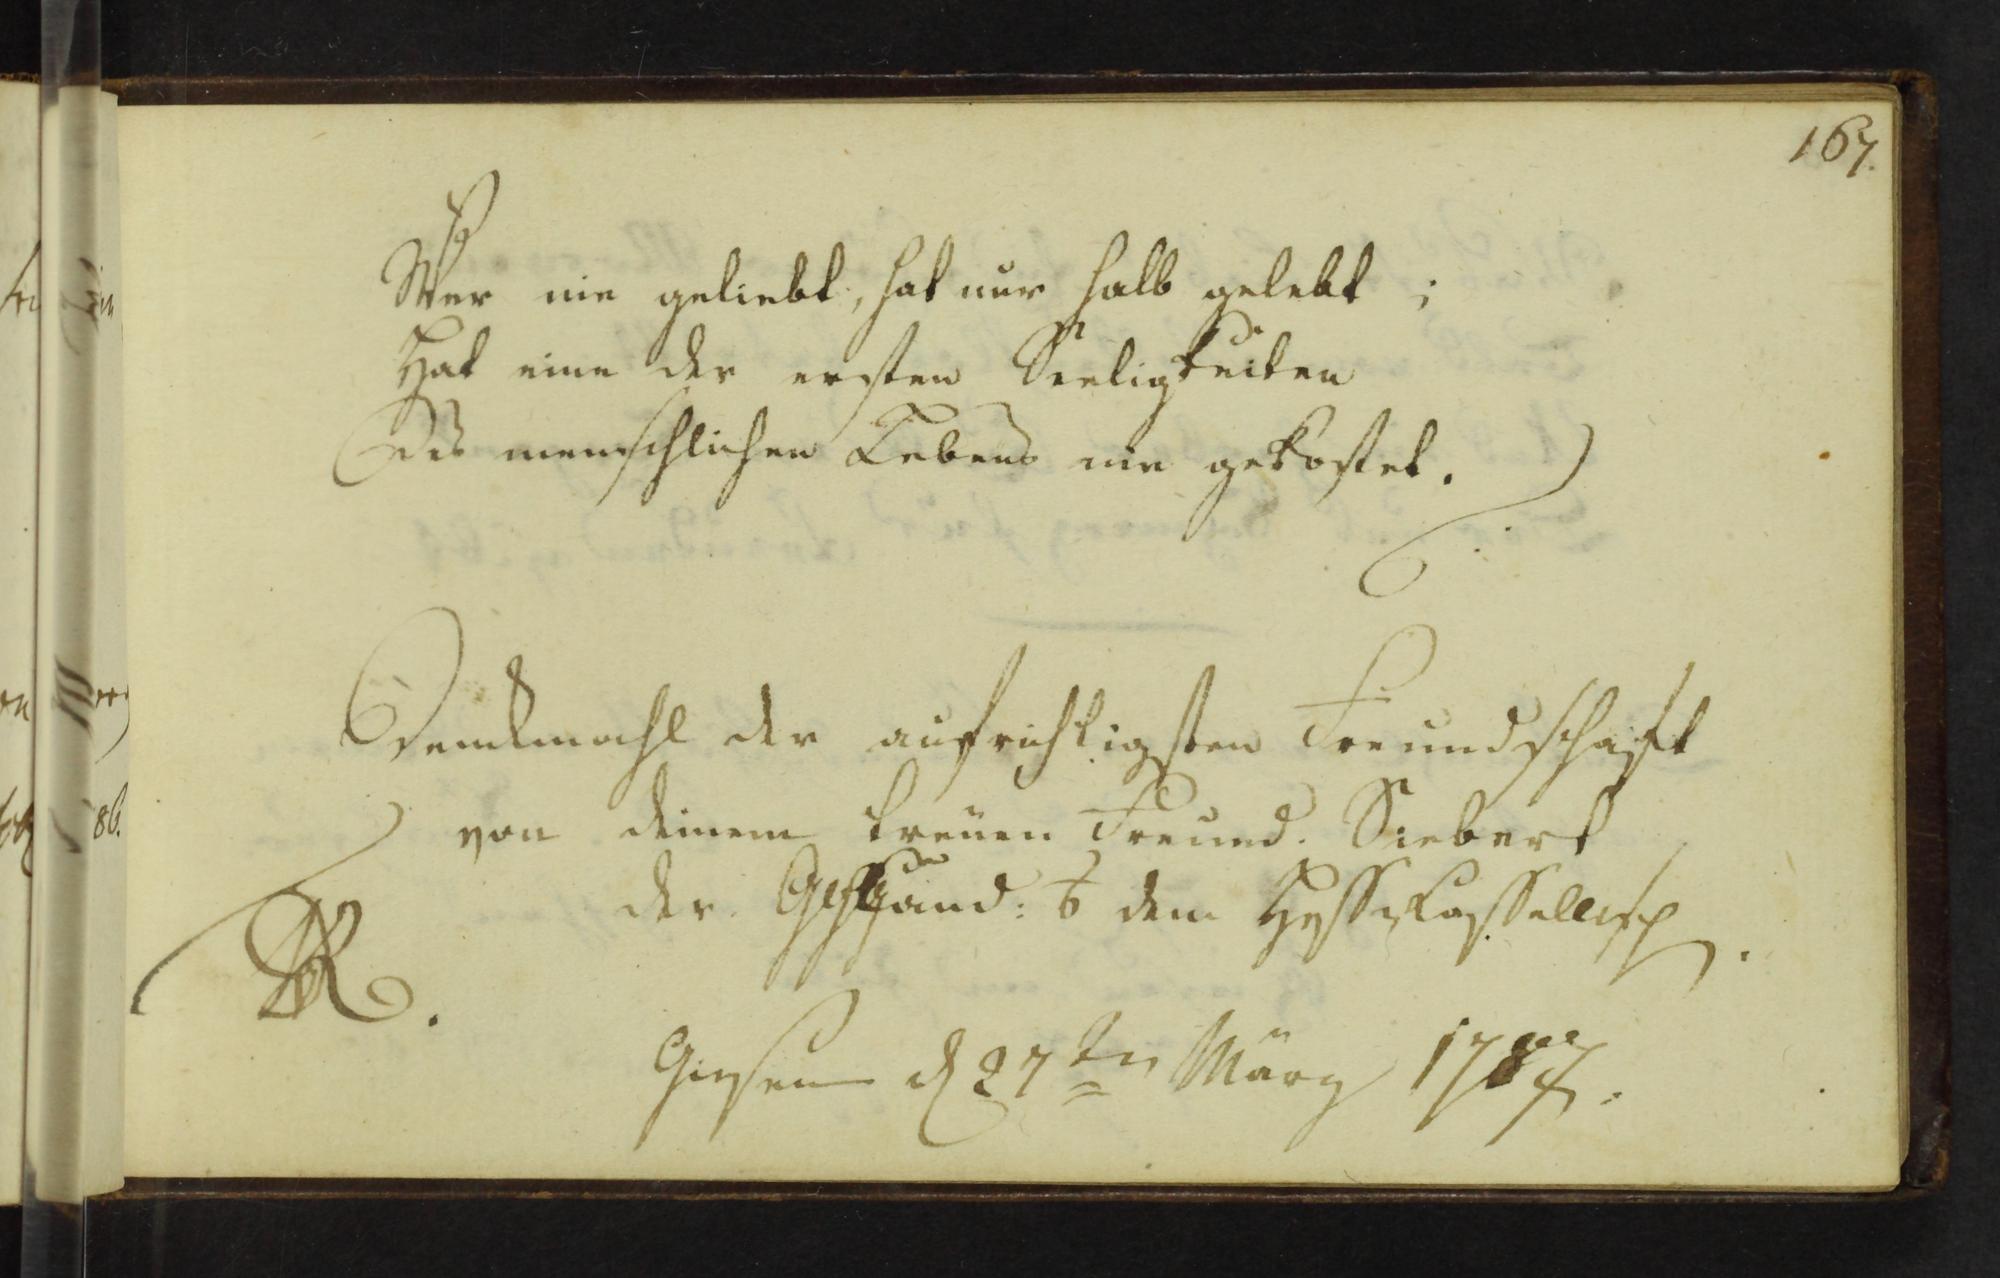 167.
Wer nie geliebt, hat nur halb gelebt;
Hat eine der ersten Seeligkeiten
Des menschlichen Lebens nie gekostet.
Denkmahl der aufrichtigsten Freundschaft
von deinem treuen Freund. Siebert
der dem
Giesen d 27ten März 1787.
86.